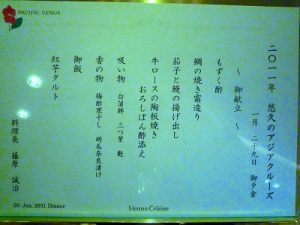 PACIFIC VENUS
二〇一一年 悠久のアジアクルーズ
一月 二十九日 御夕食
～ 御献立 ～
もずく酢
鯛の焼き霜造り
茄子と鰻の揚げ出し
牛ロースの陶板焼き
おろしぽん酢添え
吸い物 白蒲鉾 三つ葉 麩
香の物 梅酢茎干し 胡瓜奈良漬け
御飯
紅芋タルト
料理長 藤原 誠治
29. Jan. 2011 Dinner
Venus Cruise